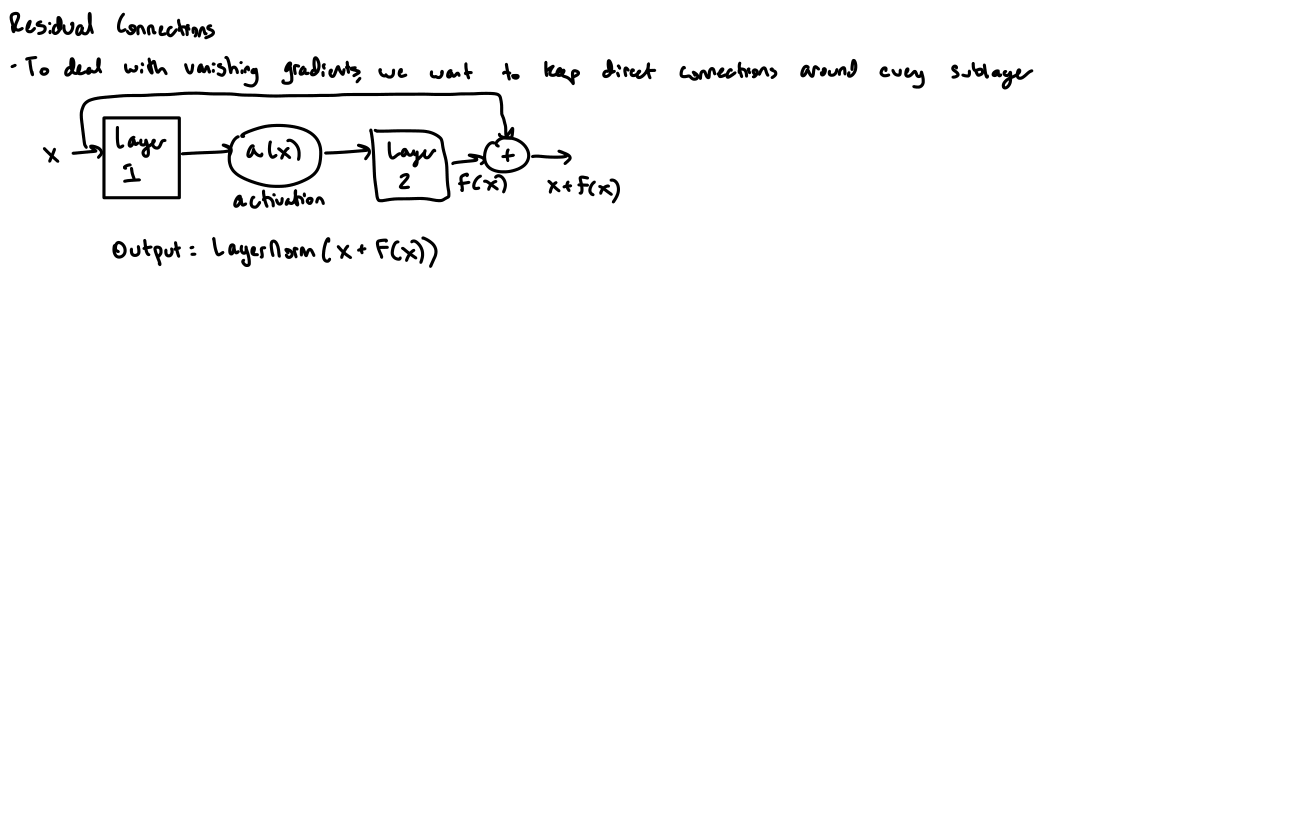 Residual Connections
- To deal with vanishing gradients, we want to keep direct connections around every sublayer
x Layer 1 a(x) Layer 2 +
F(x) x+F(x)
activation
Output = LayerNorm(x + F(x))